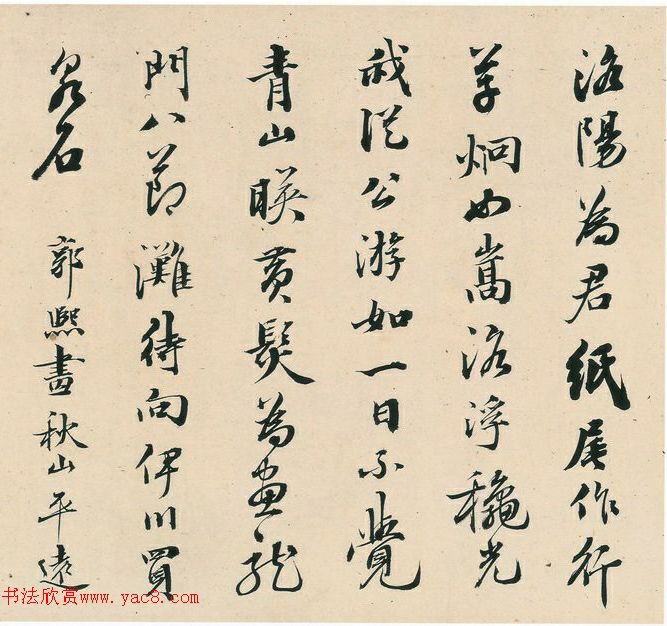 洛陽為君紙尾作行
草炯如嵩洛浮穐光
我從公游如一日不覺
青山暎黄髮為畫龍
門八節灘待向伊川買
泉石 郭熙畫秋山平遠
书法欣赏www.yac8.com